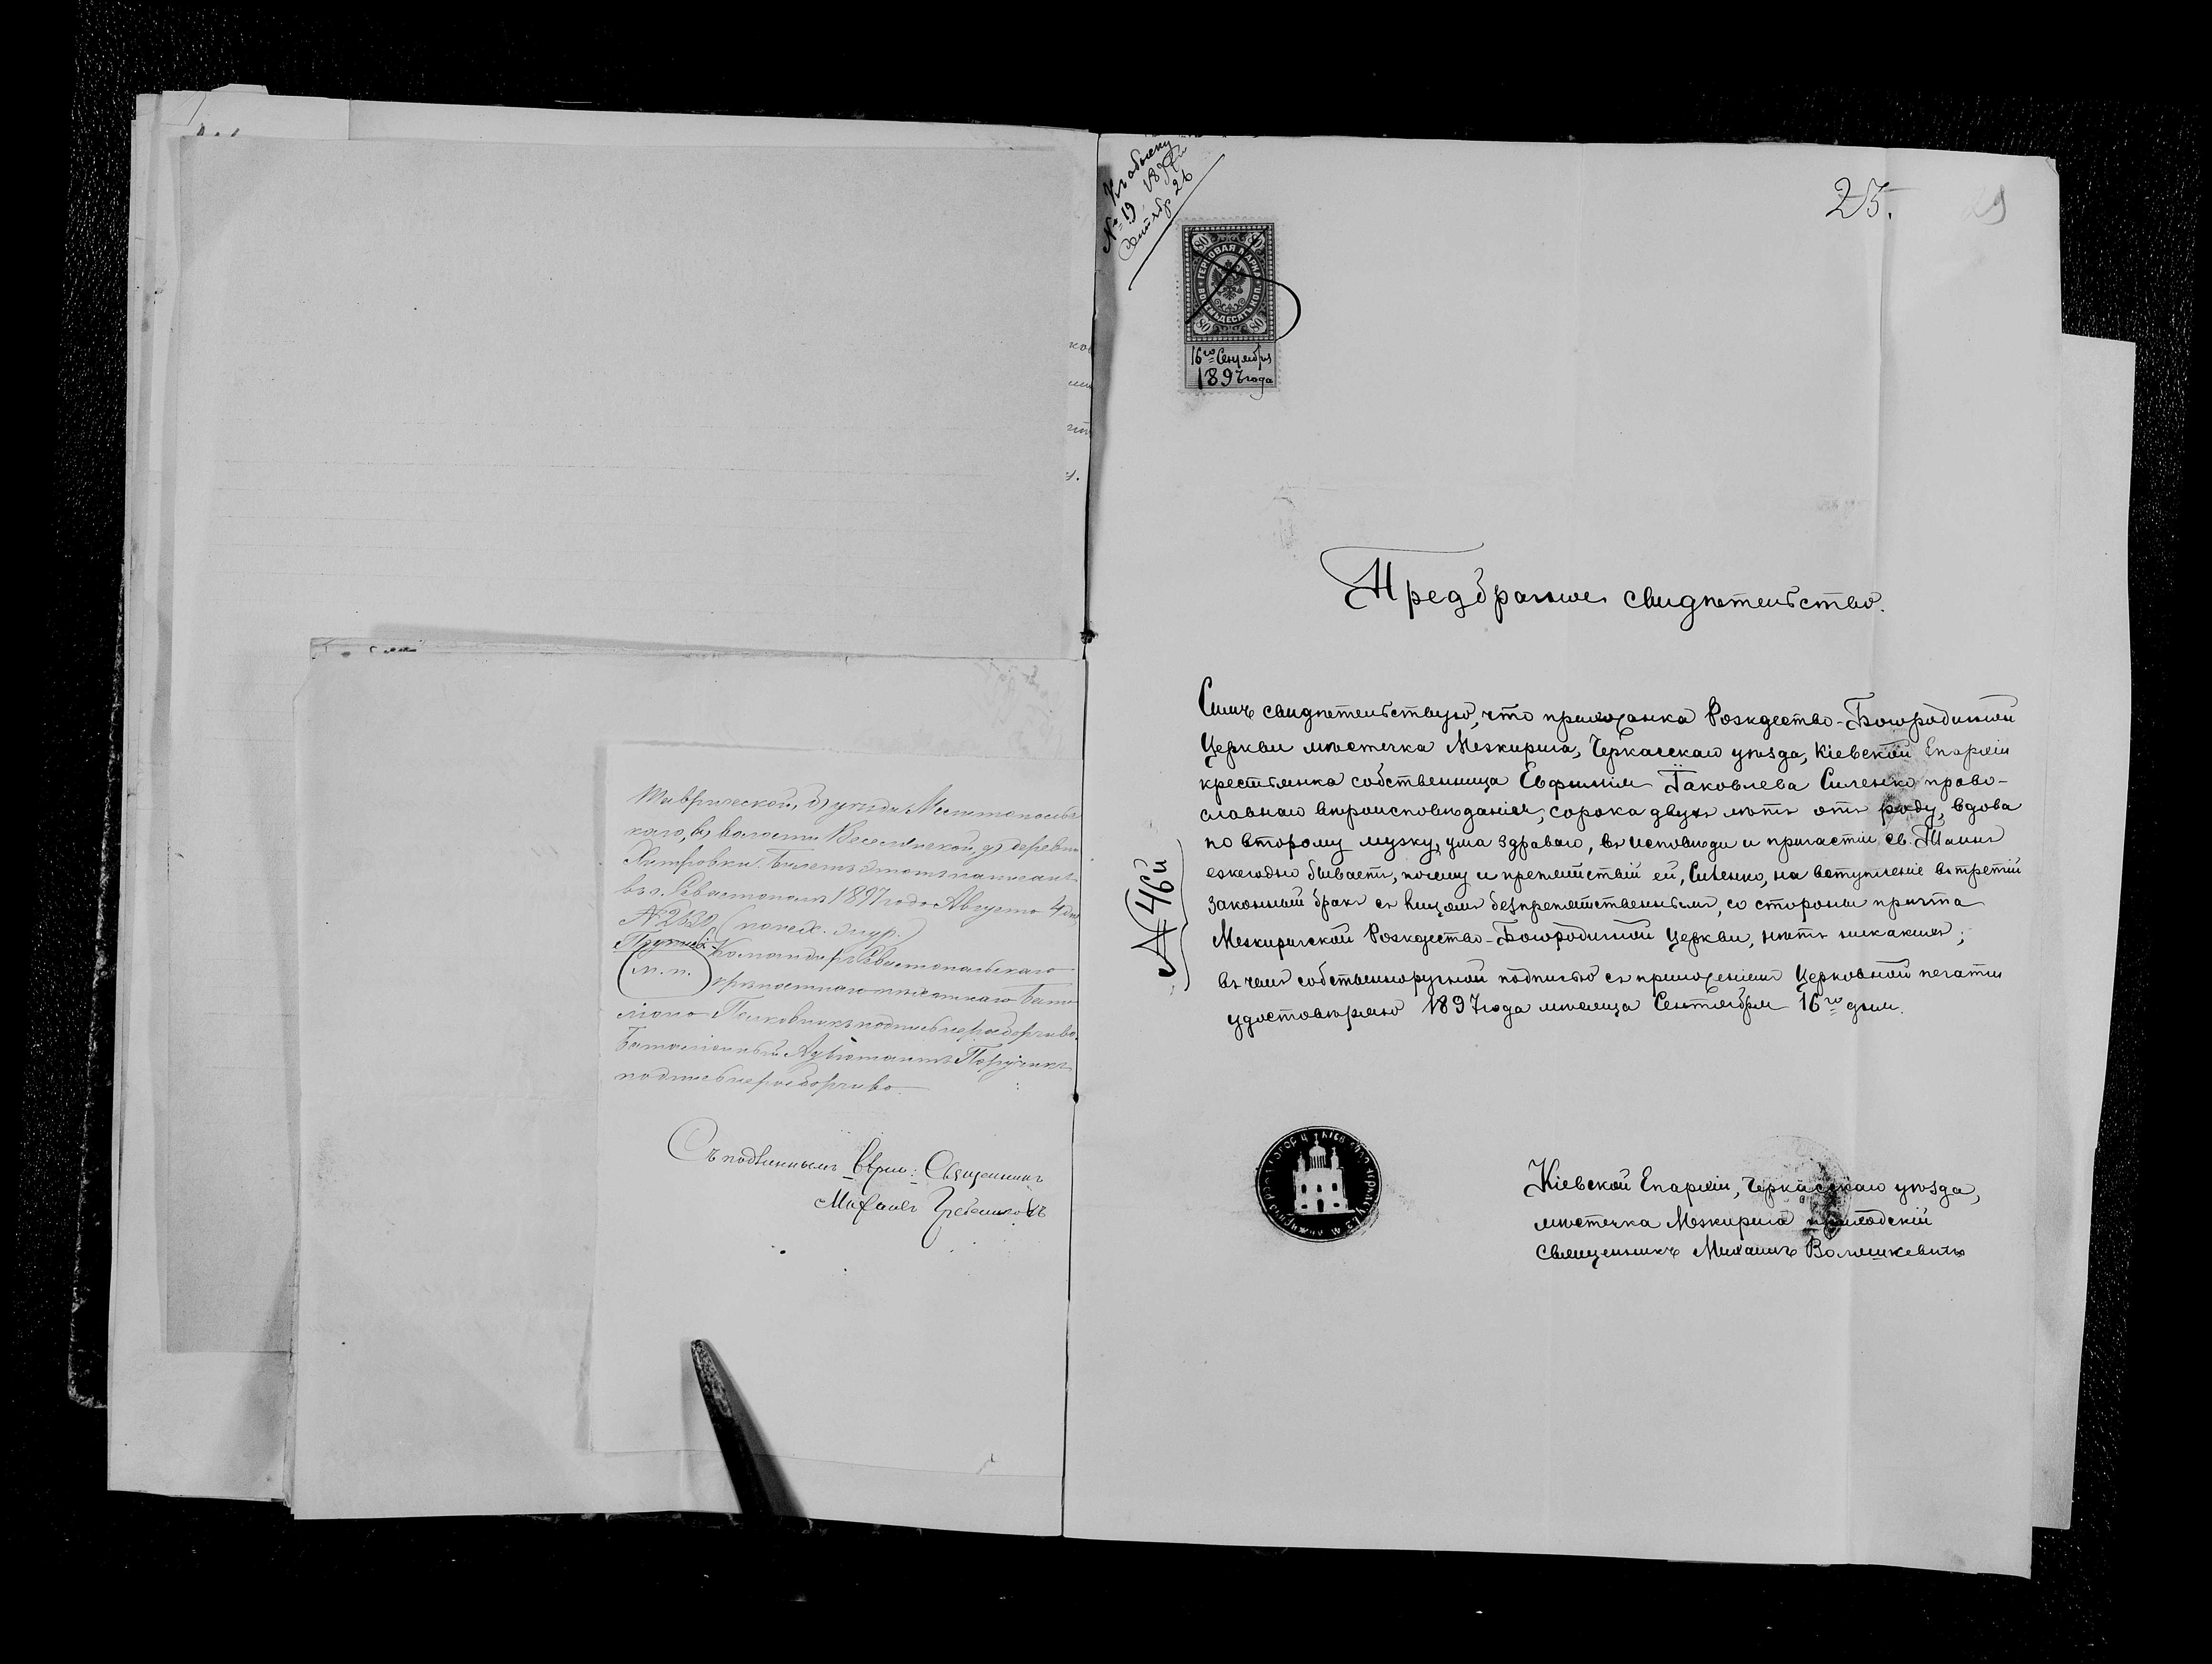 Таврической, б) уезда Мелитопольс
каго, в) волости Веселянской, г) деревни
Хитровки. Билетъ этотъ написанъ
въ г. Севастополе 1897 года Августа 4 дня
№ 2520 (исход. жур.)
Командиръ Севастопольскаго
(м. п.) крѣпостнаго пѣхотнаго Бата
ліона Полковникъ подпись неразборчиво.
Баталіонный Адъютантъ Поручикъ
подпись неразборчиво
Съ подлиннымъ вѣрно: Священникъ
Михаилъ
Къ обыску
№ 19 1897
Сентябр 26
25.
29
80 80
ГЕРБОВАЯ МАРКА
ВОСЕМЬДЕСЯТЪ КОП.
80 80
16го Сентября
1897 года
Предбрачное свидѣтельство.
Симъ свидѣтельствую, что прихожанка Рождество-Богородичной
Церкви мѣстечка Межирича, Черкасскаго уѣзда, Кіевской Епархіи
крестьянка собственница Евфимія Іаковлева Силенко право-
славнаго вѣроисповѣданія, сорока двухъ лѣтъ отъ роду, вдова
по второму мужу, ума здраваго, въ исповѣди и причастіи св. Таинъ
ежегодно бываетъ, почему и препятствій ей, Силенко, на вступленіе въ третій
законный бракъ съ лицомъ безпрепятственнымъ, со стороны причта
Межиричской Рождество-Богородичной Церкви, нѣтъ никакихъ;
въ чемъ собственноручной подписью съ приложеніемъ Церковной печати
удостовѣряю 1897 года мѣсяца Сентября 16го дня.
№ 46й
Кіевской Епархіи, Черкасскаго уѣзда,
мѣстечка Межирича приходскій
Священникъ Михаилъ